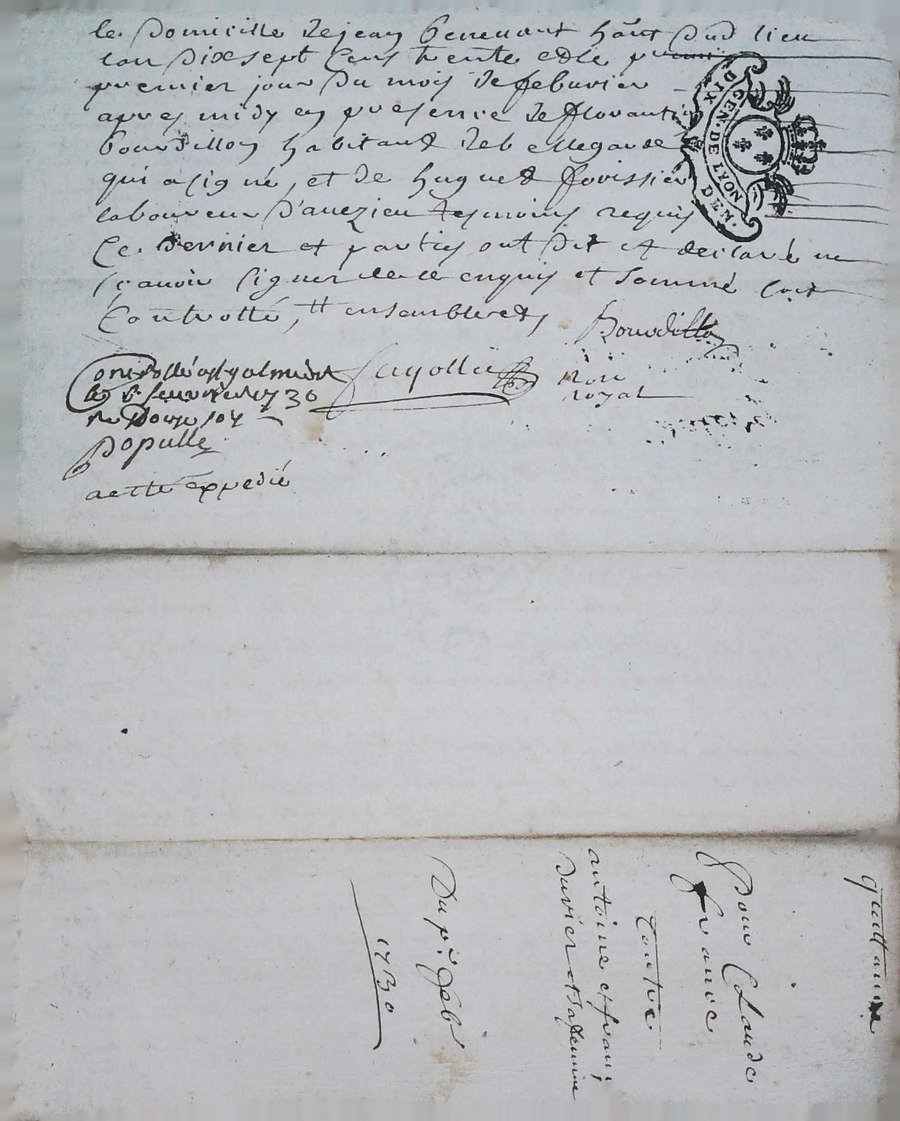 le Domicille de jean benevant hänt dud lieu
l'an Dix sept Cens trente et le
premier jour du mois de febvrier
apres midy en presence de florant
bourdillon habitant de bellegarde
qui a signé, et de hugues
laboureur d'auezieu tesmoins requis
Ce dernier et parties ont dit et declaré ne
scavoir signer de ce enquis et sommé soit
Controllé, ensembleret
Bourdillon
Controllé a st galmier
le febvrier 1730
Populle
nore
royal
acette expedié
DIX CEN. DEN.
GEN. DE LYON
quittance
pour Claude
france
Contre
antoine et fran;
duvier et sa femme
Du pr. feb.
1730